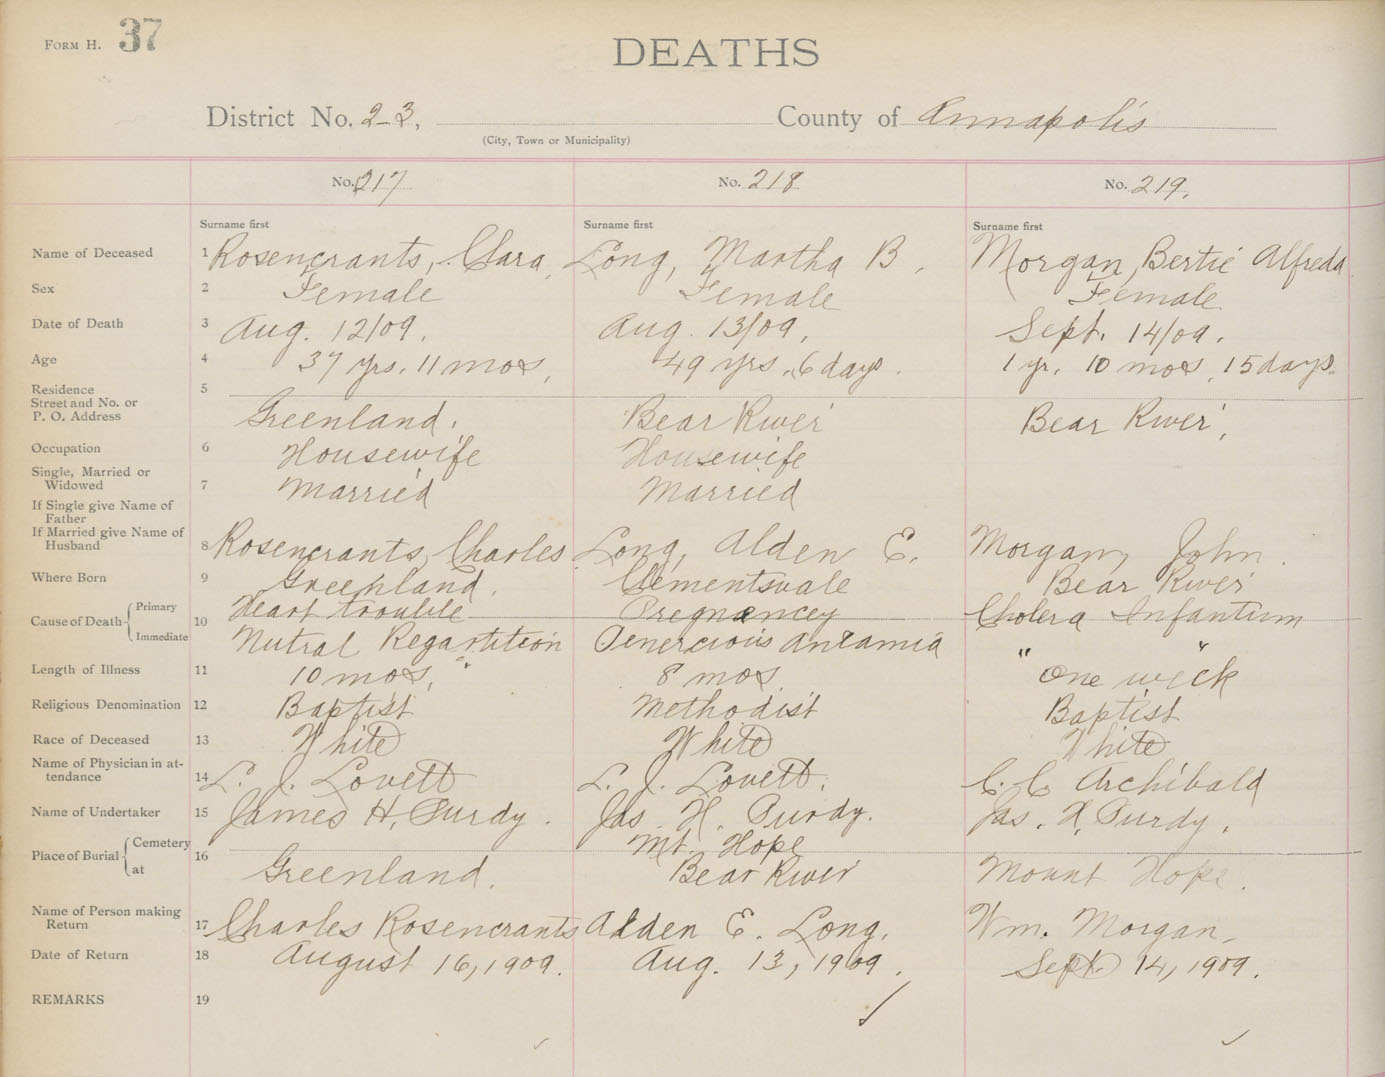 FORM H. 37
DEATHS
District No. 2-3, County of Annapolis
(City, Town or Municipality)
No. 217 No. 218 No. 219.
Surname first Surname first Surname first
Name of Deceased 1 Rosencrants, Clara, Long, Martha B. Morgan, Bertie Alfreda
Sex 2 Female Female Female
Date of Death 3 Aug. 12/09. Aug. 13/09, Sept. 14/09.
Age 4 37 yrs. 11 mos, 49 yrs. 6 days. 1 yr. 10 mos, 15 days.
Residence 5
Street and No. or
P. O. Address Greenland. Bear River Bear River,
Occupation 6 Housewife Housewife
Single, Married or
Widowed 7 Married Married
If Single give Name of
Father
If Married give Name of
Husband 8 Rosencrants, Charles Long, Alden E. Morgan, John.
Where Born 9 Greenland. Clementsvale Bear River
Cause of Death Primary Heart trouble Pregnancey Cholera Infantum
10
Immediate Mutral Regartition Penercious Anaamia " "
Length of Illness 11 10 mos, 8 mos One week
Religious Denomination 12 Baptist Methodist Baptist
Race of Deceased 13 White White White
Name of Physician in at-
tendance 14 L. J. Lovett L. J. Lovett. C. C Archibald
Name of Undertaker 15 James H. Purdy. Jas. H. Purdy. Jas. H. Purdy.
Place of Burial Cemetery 16 Mt. Hope
at Greenland. Bear River Mount Hope.
Name of Person making
Return 17 Charles Rosencrants Alden E. Long. Wm. Morgan,
Date of Return 18 August 16, 1909. Aug. 13, 1909. Sept. 14, 1909.
REMARKS 19